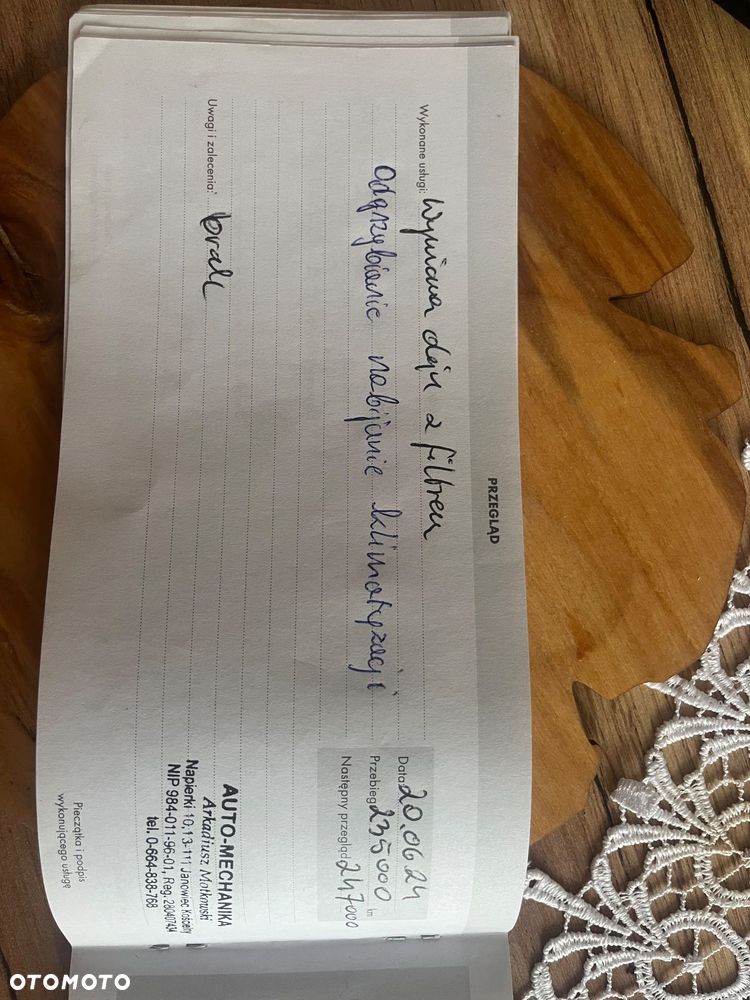 PRZEGLĄD
Wykonane usługi: Wymiana oleju z filtrem
odgrzybianie nabijanie klimatyzacji
Data 20.06.24
Przebieg 235000 km
Następny przegląd 247000
Uwagi i zalecenia: brak
AUTO-MECHANIKA
Arkadiusz
Napierki 10, 13-111 Janowiec Kościelny
NIP 984-011-96-01, Reg. 280407434
tel. 0-664-838-768
Pieczątka i podpis
wykonującego usługę
OTOMOTO